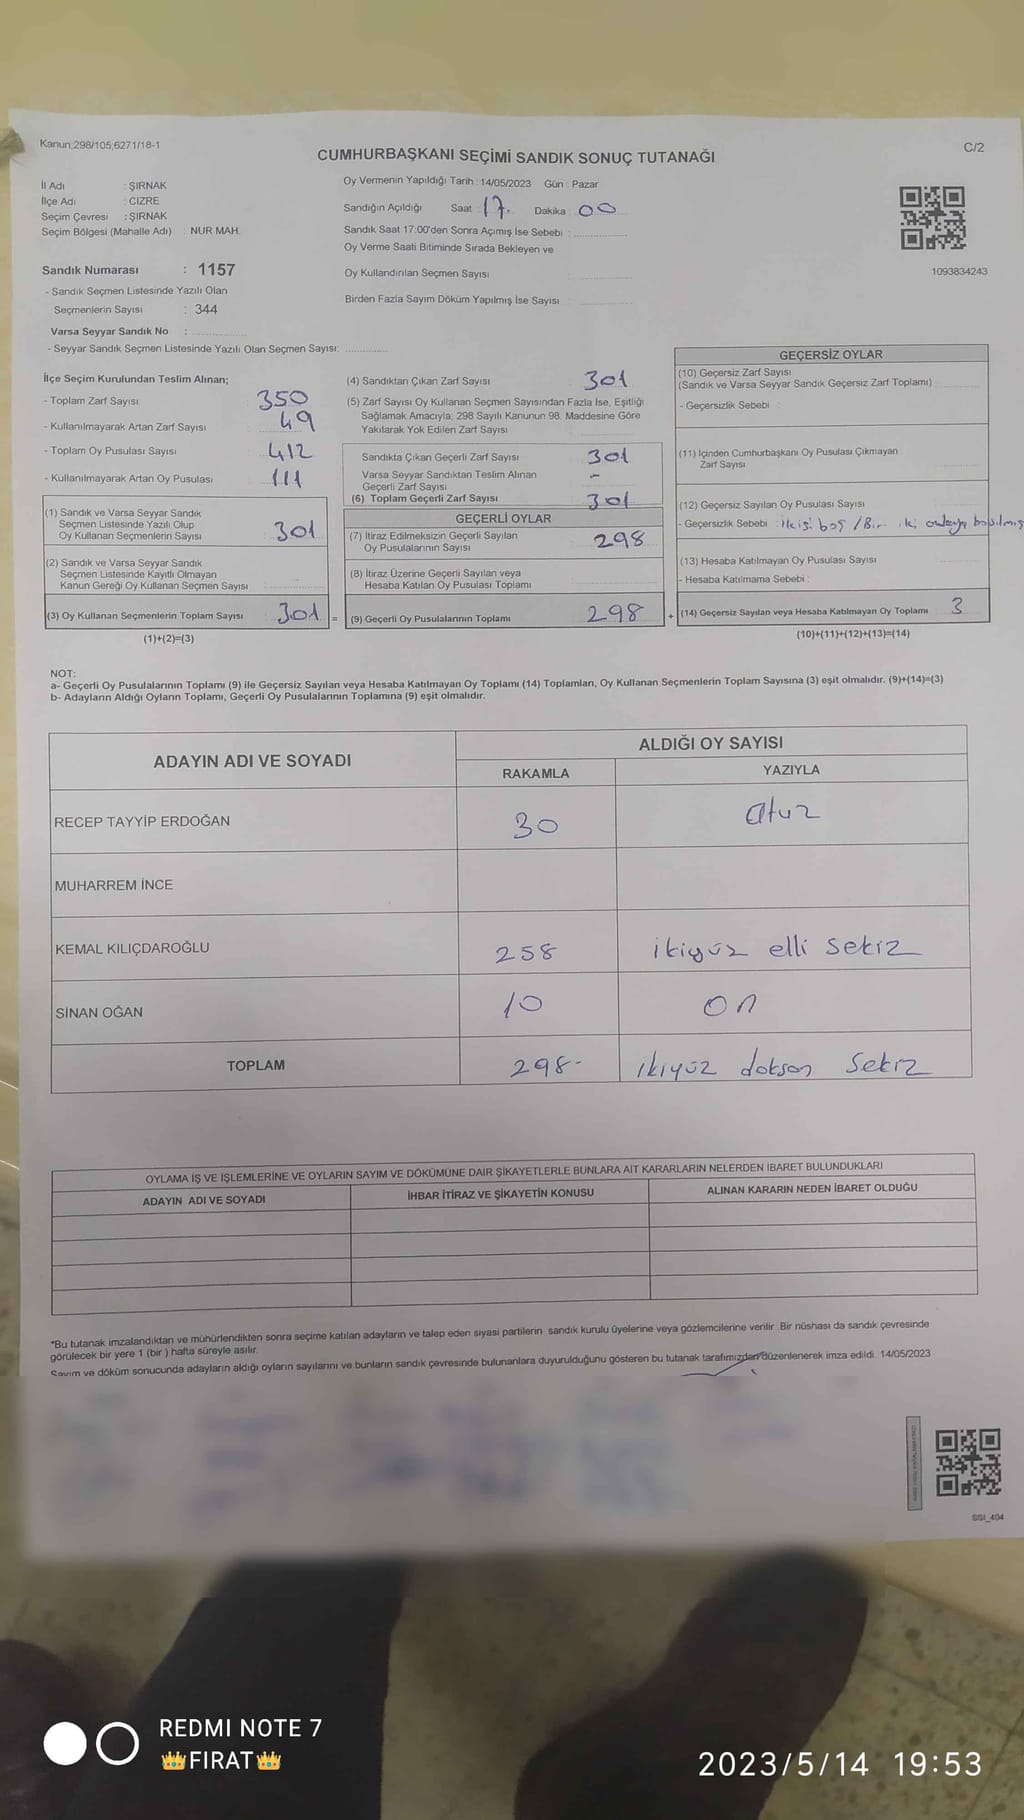 Kanun;298/105;6271/18-1
C/2
CUMHURBAŞKANI SEÇİMİ SANDIK SONUÇ TUTANAĞI
İl Adı : ŞIRNAK
İlçe Adı : CİZRE
Seçim Çevresi : ŞIRNAK
Seçim Bölgesi (Mahalle Adı) : NUR MAH.
Oy Vermenin Yapıldığı Tarih : 14/05/2023 Gün : Pazar
Sandığın Açıldığı Saat : 17. Dakika : 00
Sandık Saat 17:00'den Sonra Açımış İse Sebebi :
Oy Verme Saati Bitiminde Sırada Bekleyen ve
Oy Kullandırılan Seçmen Sayısı :
Birden Fazla Sayım Döküm Yapılmış İse Sayısı :
1093834243
Sandık Numarası : 1157
- Sandık Seçmen Listesinde Yazılı Olan
Seçmenlerin Sayısı : 344
Varsa Seyyar Sandık No :
- Seyyar Sandık Seçmen Listesinde Yazılı Olan Seçmen Sayısı:
İlçe Seçim Kurulundan Teslim Alınan;
- Toplam Zarf Sayısı : 350
- Kullanılmayarak Artan Zarf Sayısı : 49
- Toplam Oy Pusulası Sayısı : 412
- Kullanılmayarak Artan Oy Pusulası : 111
(1) Sandık ve Varsa Seyyar Sandık
Seçmen Listesinde Yazılı Olup
Oy Kullanan Seçmenlerin Sayısı 301
(2) Sandık ve Varsa Seyyar Sandık
Seçmen Listesinde Kayıtlı Olmayan
Kanun Gereği Oy Kullanan Seçmen Sayısı
(3) Oy Kullanan Seçmenlerin Toplam Sayısı 301 =
(1)+(2)=(3)
(4) Sandıktan Çıkan Zarf Sayısı : 301
(5) Zarf Sayısı Oy Kullanan Seçmen Sayısından Fazla İse, Eşitliği
Sağlamak Amacıyla; 298 Sayılı Kanunun 98. Maddesine Göre
Yakılarak Yok Edilen Zarf Sayısı
Sandıkta Çıkan Geçerli Zarf Sayısı 301
Varsa Seyyar Sandıktan Teslim Alınan
Geçerli Zarf Sayısı -
(6) Toplam Geçerli Zarf Sayısı 301
GEÇERLİ OYLAR
(7) İtiraz Edilmeksizin Geçerli Sayılan
Oy Pusulalarının Sayısı 298
(8) İtiraz Üzerine Geçerli Sayılan veya
Hesaba Katılan Oy Pusulası Toplamı
(9) Geçerli Oy Pusulalarının Toplamı 298 +
GEÇERSİZ OYLAR
(10) Geçersiz Zarf Sayısı
(Sandık ve Varsa Seyyar Sandık Geçersiz Zarf Toplamı)
- Geçersizlik Sebebi :
(11) İçinden Cumhurbaşkanı Oy Pusulası Çıkmayan
Zarf Sayısı
(12) Geçersiz Sayılan Oy Pusulası Sayısı
- Geçersizlik Sebebi : ikisi boş / Bir iki adaya basılmış
(13) Hesaba Katılmayan Oy Pusulası Sayısı
- Hesaba Katılmama Sebebi :
(14) Geçersiz Sayılan veya Hesaba Katılmayan Oy Toplamı 3
(10)+(11)+(12)+(13)=(14)
NOT:
a- Geçerli Oy Pusulalarının Toplamı (9) ile Geçersiz Sayılan veya Hesaba Katılmayan Oy Toplamı (14) Toplamları, Oy Kullanan Seçmenlerin Toplam Sayısına (3) eşit olmalıdır. (9)+(14)=(3)
b- Adayların Aldığı Oyların Toplamı, Geçerli Oy Pusulalarının Toplamına (9) eşit olmalıdır.
ADAYIN ADI VE SOYADI
ALDIĞI OY SAYISI
RAKAMLA YAZIYLA
RECEP TAYYİP ERDOĞAN 30 otuz
MUHARREM İNCE
KEMAL KILIÇDAROĞLU 258 ikiyüz elli sekiz
SİNAN OĞAN 10 on
TOPLAM 298- ikiyüz doksan sekiz
OYLAMA İŞ VE İŞLEMLERİNE VE OYLARIN SAYIM VE DÖKÜMÜNE DAİR ŞİKAYETLERLE BUNLARA AİT KARARLARIN NELERDEN İBARET BULUNDUKLARI
ADAYIN ADI VE SOYADI İHBAR İTİRAZ VE ŞİKAYETİN KONUSU ALINAN KARARIN NEDEN İBARET OLDUĞU
*Bu tutanak imzalandıktan ve mühürlendikten sonra seçime katılan adayların ve talep eden siyasi partilerin sandık kurulu üyelerine veya gözlemcilerine verilir. Bir nüshası da sandık çevresinde
görülecek bir yere 1 (bir ) hafta süreyle asılır.
Sayım ve döküm sonucunda adayların aldığı oyların sayılarını ve bunların sandık çevresinde bulunanlara duyurulduğunu gösteren bu tutanak tarafımızdan düzenlenerek imza edildi. 14/05/2023
SSI_404
REDMI NOTE 7
👑FIRAT👑
2023/5/14 19:53